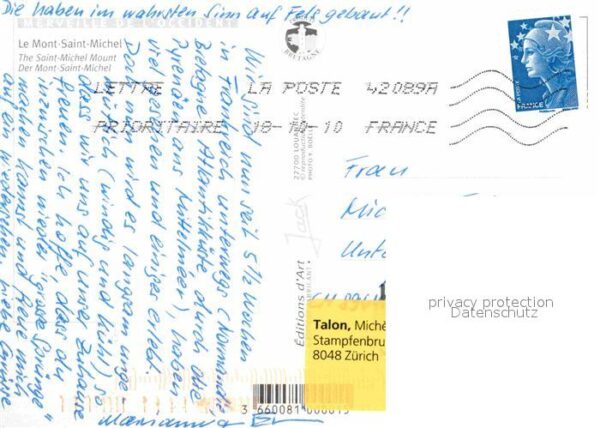 Die haben im wahrsten Sinn auf Fels gebaut!!
MERVEILLE DE L'OCCIDENT
Le Mont-Saint-Michel
The Saint-Michel Mount
Der Mont-Saint-Michel
BRETAGNE
FRANCE
LETTRE LA POSTE 42089A
PRIORITAIRE 18-10-10 FRANCE
Wir sind nun seit 5 1/2 Wochen
in Frankreich unterwegs (Normandie
Bretagne Atlantikküste durch die
Pyrenäen ans Mittelmeer), haben
viel gesehen und einiges erlebt.
Doch nun wird es langsam unge-
mütlich (windig und kühl) so
dass wir uns auf unser Zuhause
freuen. Ich hoffe dass du
inzwischen wieder "grosse Sprünge"
machen kannst und freue mich
auf ein Wiedersehen. Liebe Grüsse
Marianne
Editions d'Art
Jack
27700 LOUARTEC
Frau
Mic
Unt
CH
Talon, Miché
Stampfenbru
8048 Zürich
3 660081 000015
privacy protection
Datenschutz